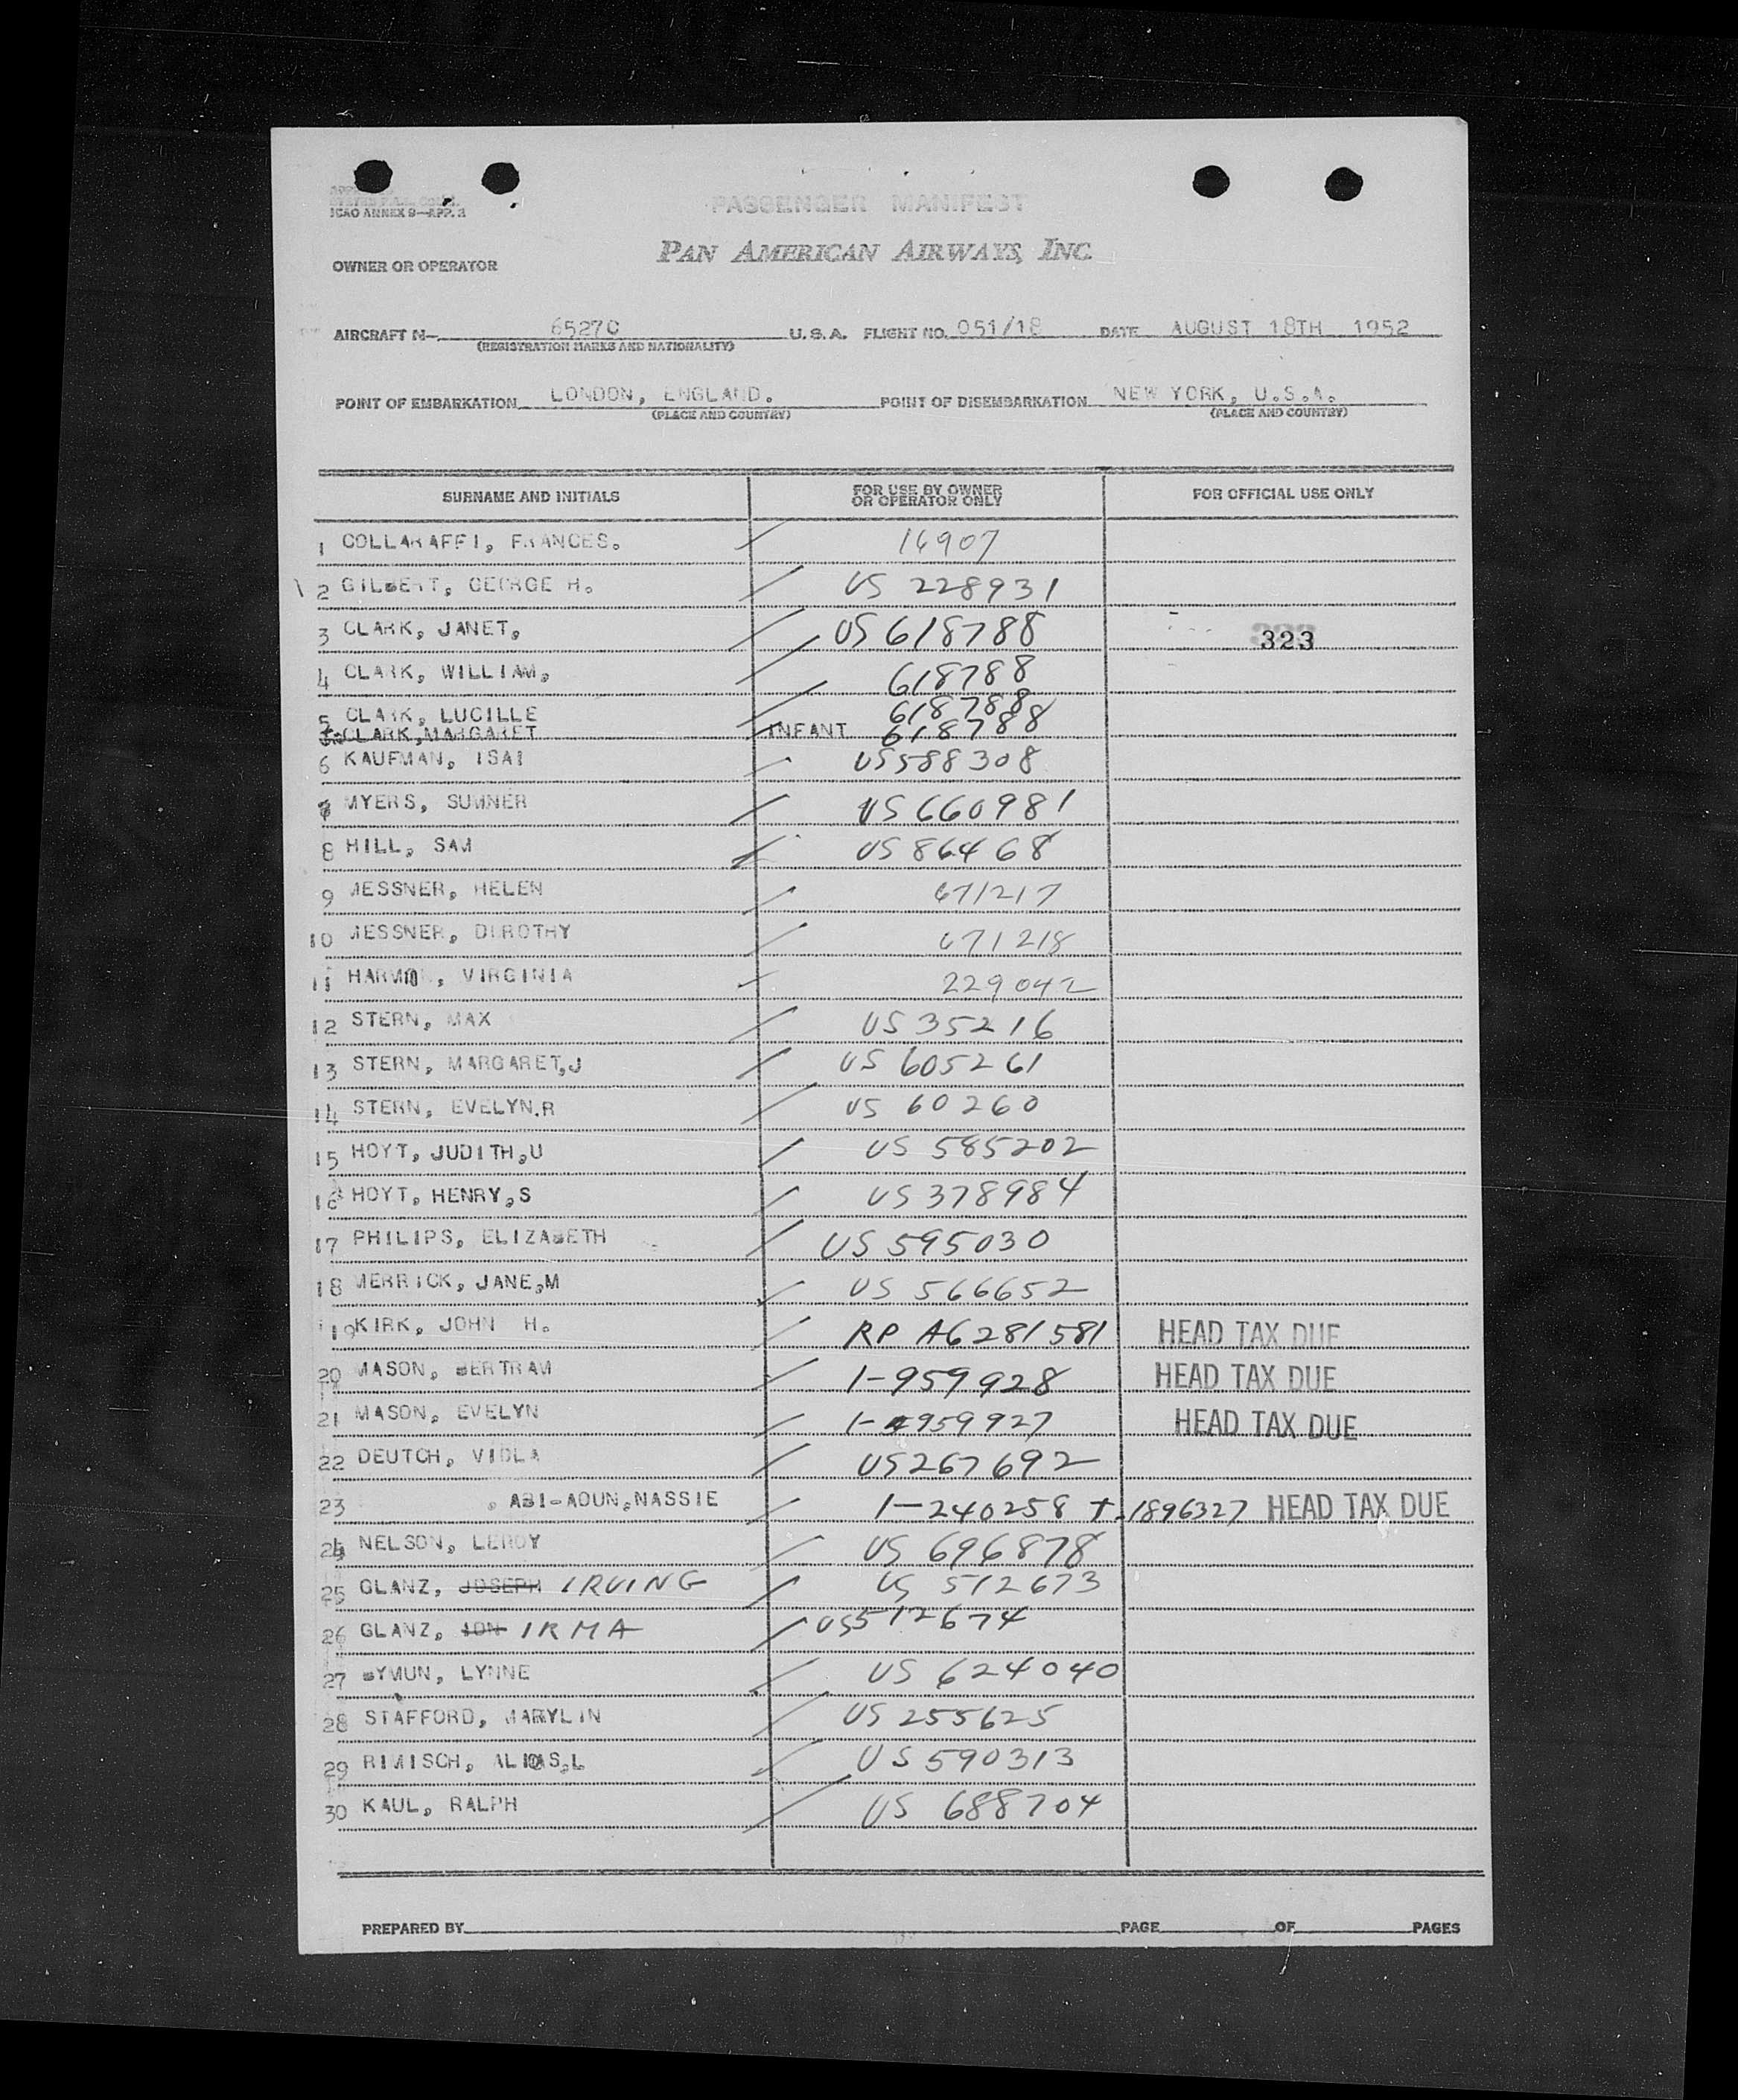 ICAO ANNEX 9—APP. 3
PASSENGER MANIFEST
OWNER OR OPERATOR
PAN AMERICAN AIRWAYS, INC.
AIRCRAFT N— 65270 U. S. A. FLIGHT NO. 051/18 DATE AUGUST 18TH 1952
(REGISTRATION MARKS AND NATIONALITY)
POINT OF EMBARKATION LONDON, ENGLAND. POINT OF DISEMBARKATION NEW YORK, U.S.A.
(PLACE AND COUNTRY) (PLACE AND COUNTRY)
SURNAME AND INITIALS FOR USE BY OWNER OR OPERATOR ONLY FOR OFFICIAL USE ONLY
1 COLLARAFFI, FRANCES. 14907
2 GILBERT, GEORGE H. US 228931
3 CLARK, JANET, US 618788 323
4 CLARK, WILLIAM, 618788
5 CLARK, LUCILLE 618788
CLARK, MARGARET INFANT 618788
6 KAUFMAN, ISAI US 588308
7 MYERS, SUMNER US 660981
8 HILL, SAM US 86468
9 MESSNER, HELEN 671217
10 MESSNER, DOROTHY 671218
11 HARMON, VIRGINIA 229042
12 STERN, MAX US 35216
13 STERN, MARGARET,J US 605261
14 STERN, EVELYN.R US 60260
15 HOYT, JUDITH,U US 585202
16 HOYT, HENRY,S US 378984
17 PHILIPS, ELIZABETH US 595030
18 MERRICK, JANE,M US 566652
19 KIRK, JOHN H. RP A6281581 HEAD TAX DUE
20 MASON, BERTRAM 1-959928 HEAD TAX DUE
21 MASON, EVELYN 1-959927 HEAD TAX DUE
22 DEUTCH, VIOLA US 267692
23 , ABI-AOUN,NASSIE 1-240258 T-1896327 HEAD TAX DUE
24 NELSON, LEROY US 696878
25 GLANZ, JOSEPH IRVING US 512673
26 GLANZ, JON IRMA US 512674
27 BYMUN, LYNNE US 624040
28 STAFFORD, MARYLIN US 255625
29 RIMISCH, US 590313
30 KAUL, RALPH US 688704
PREPARED BY PAGE OF PAGES